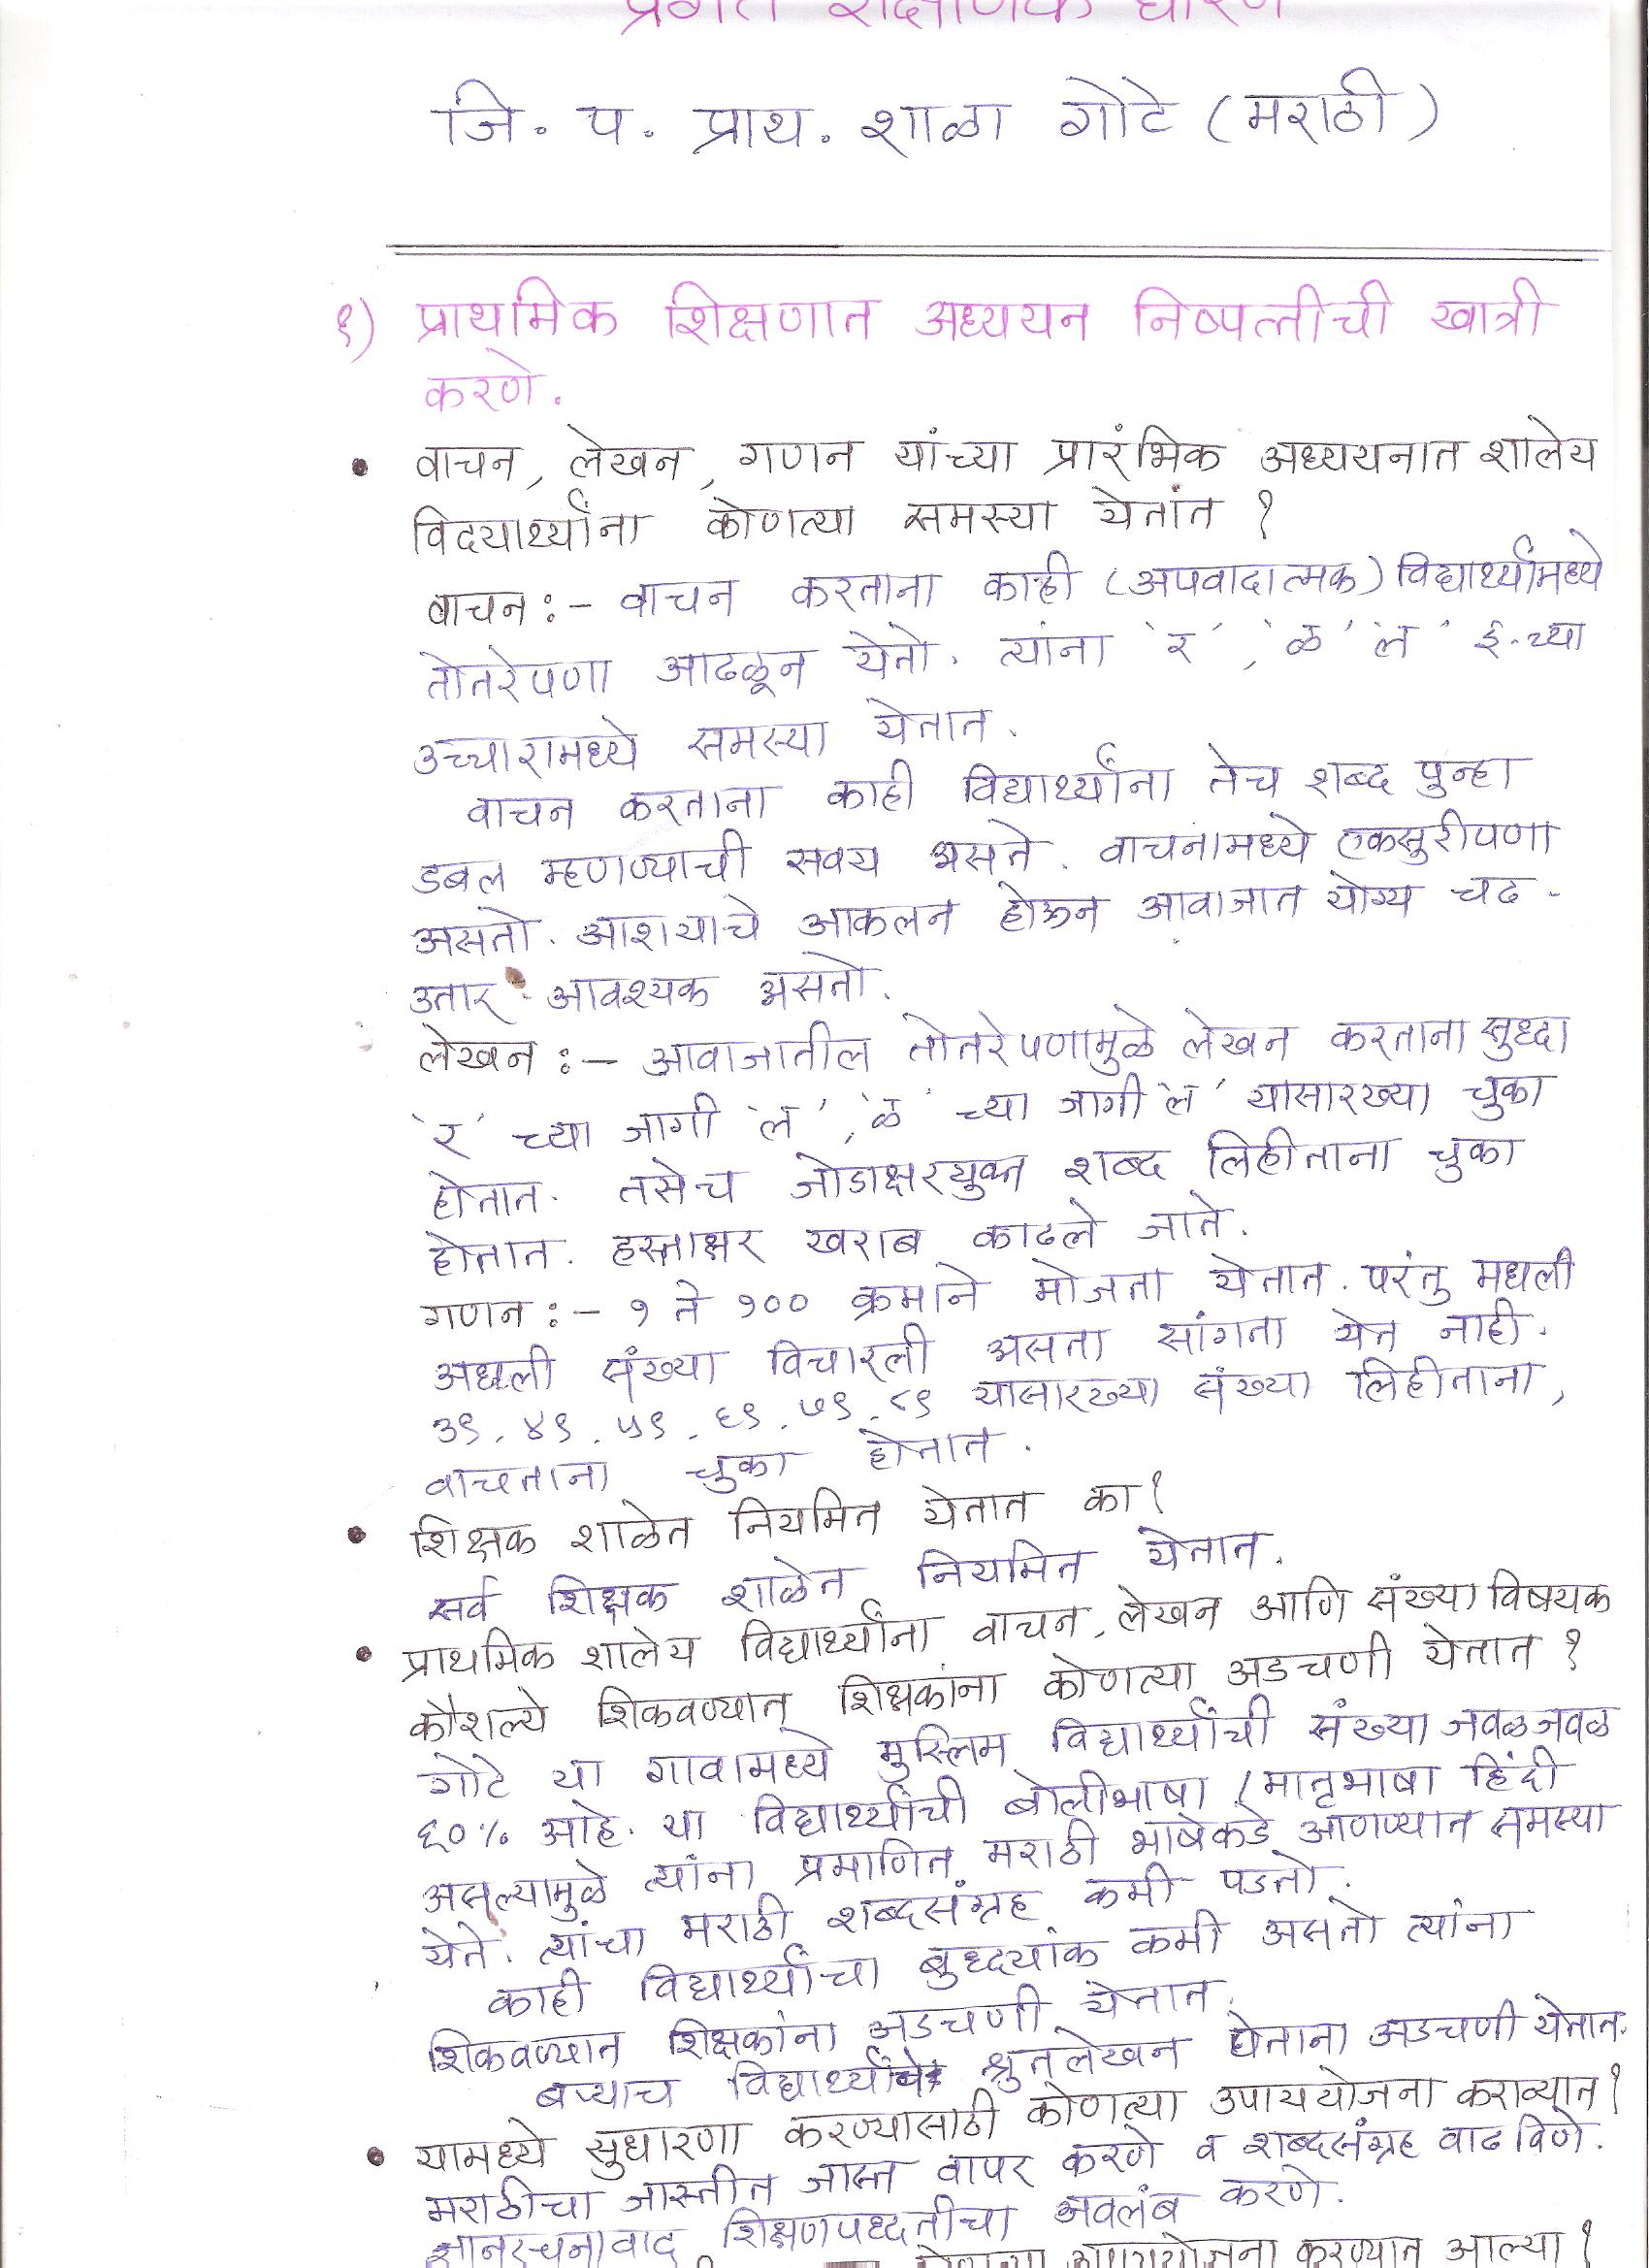 प्रगत शैक्षणिक धोरण
जि. प. प्राथ. शाळा गोटे (मराठी)
१) प्राथमिक शिक्षणात अध्ययन निष्पत्तीची खात्री
करणे.
• वाचन, लेखन, गणन यांच्या प्रारंभिक अध्ययनात शालेय
विदयार्थ्यांना कोणत्या समस्या येतांत ?
वाचन :- वाचन करताना काही (अपवादात्मक) विद्यार्थ्यांमध्ये
तोतरेपणा आढळून येतो. त्यांना 'र', 'ळ' 'ल' इ.च्या
उच्चारामध्ये समस्या येतात.
वाचन करताना काही विद्यार्थ्यांना तेच शब्द पुन्हा
डबल म्हणण्याची सवय असते. वाचनामध्ये एकसुरीपणा
असतो. आशयाचे आकलन होऊन आवाजात योग्य चढ -
उतार आवश्यक असतो.
लेखन :- आवाजातील तोतरेपणामुळे लेखन करताना सुध्दा
'र' च्या जागी 'ल', 'ळ' च्या जागी 'ल' यासारख्या चुका
होतात. तसेच जोडाक्षरयुक्त शब्द लिहीताना चुका
होतात. हस्ताक्षर खराब काढले जाते.
गणन :- १ ते १०० क्रमाने मोजता येतात. परंतु मधली
अधली संख्या विचारली असता सांगता येत नाही.
३९, ४९, ५९, ६९, ७९, ८९ यासारख्या संख्या लिहीताना,
वाचताना चुका होतात.
• शिक्षक शाळेत नियमित येतात का ?
सर्व शिक्षक शाळेत नियमित येतात.
• प्राथमिक शालेय विद्यार्थ्यांना वाचन, लेखन आणि संख्याविषयक
कौशल्ये शिकवण्यात शिक्षकांना कोणत्या अडचणी येतात ?
गोटे या गावामध्ये मुस्लिम विद्यार्थ्यांची संख्या जवळजवळ
६०% आहे. या विद्यार्थ्यांची बोलीभाषा / मातृभाषा हिंदी
असल्यामुळे त्यांना प्रमाणित मराठी भाषेकडे आणण्यात समस्या
येते. त्यांचा मराठी शब्दसंग्रह कमी पडतो.
काही विद्यार्थ्यांचा बुध्दयांक कमी असतो त्यांना
शिकवण्यात शिक्षकांना अडचणी येतात.
बऱ्याच विद्यार्थ्यांचे श्रुतलेखन घेताना अडचणी येतात.
• यामध्ये सुधारणा करण्यासाठी कोणत्या उपाययोजना कराव्यात ?
मराठीचा जास्तीत जास्त वापर करणे व शब्दसंग्रह वाढविणे.
ज्ञानरचनावाद शिक्षणपध्दतीचा अवलंब करणे.
उपाययोजना करण्यात आल्या ?